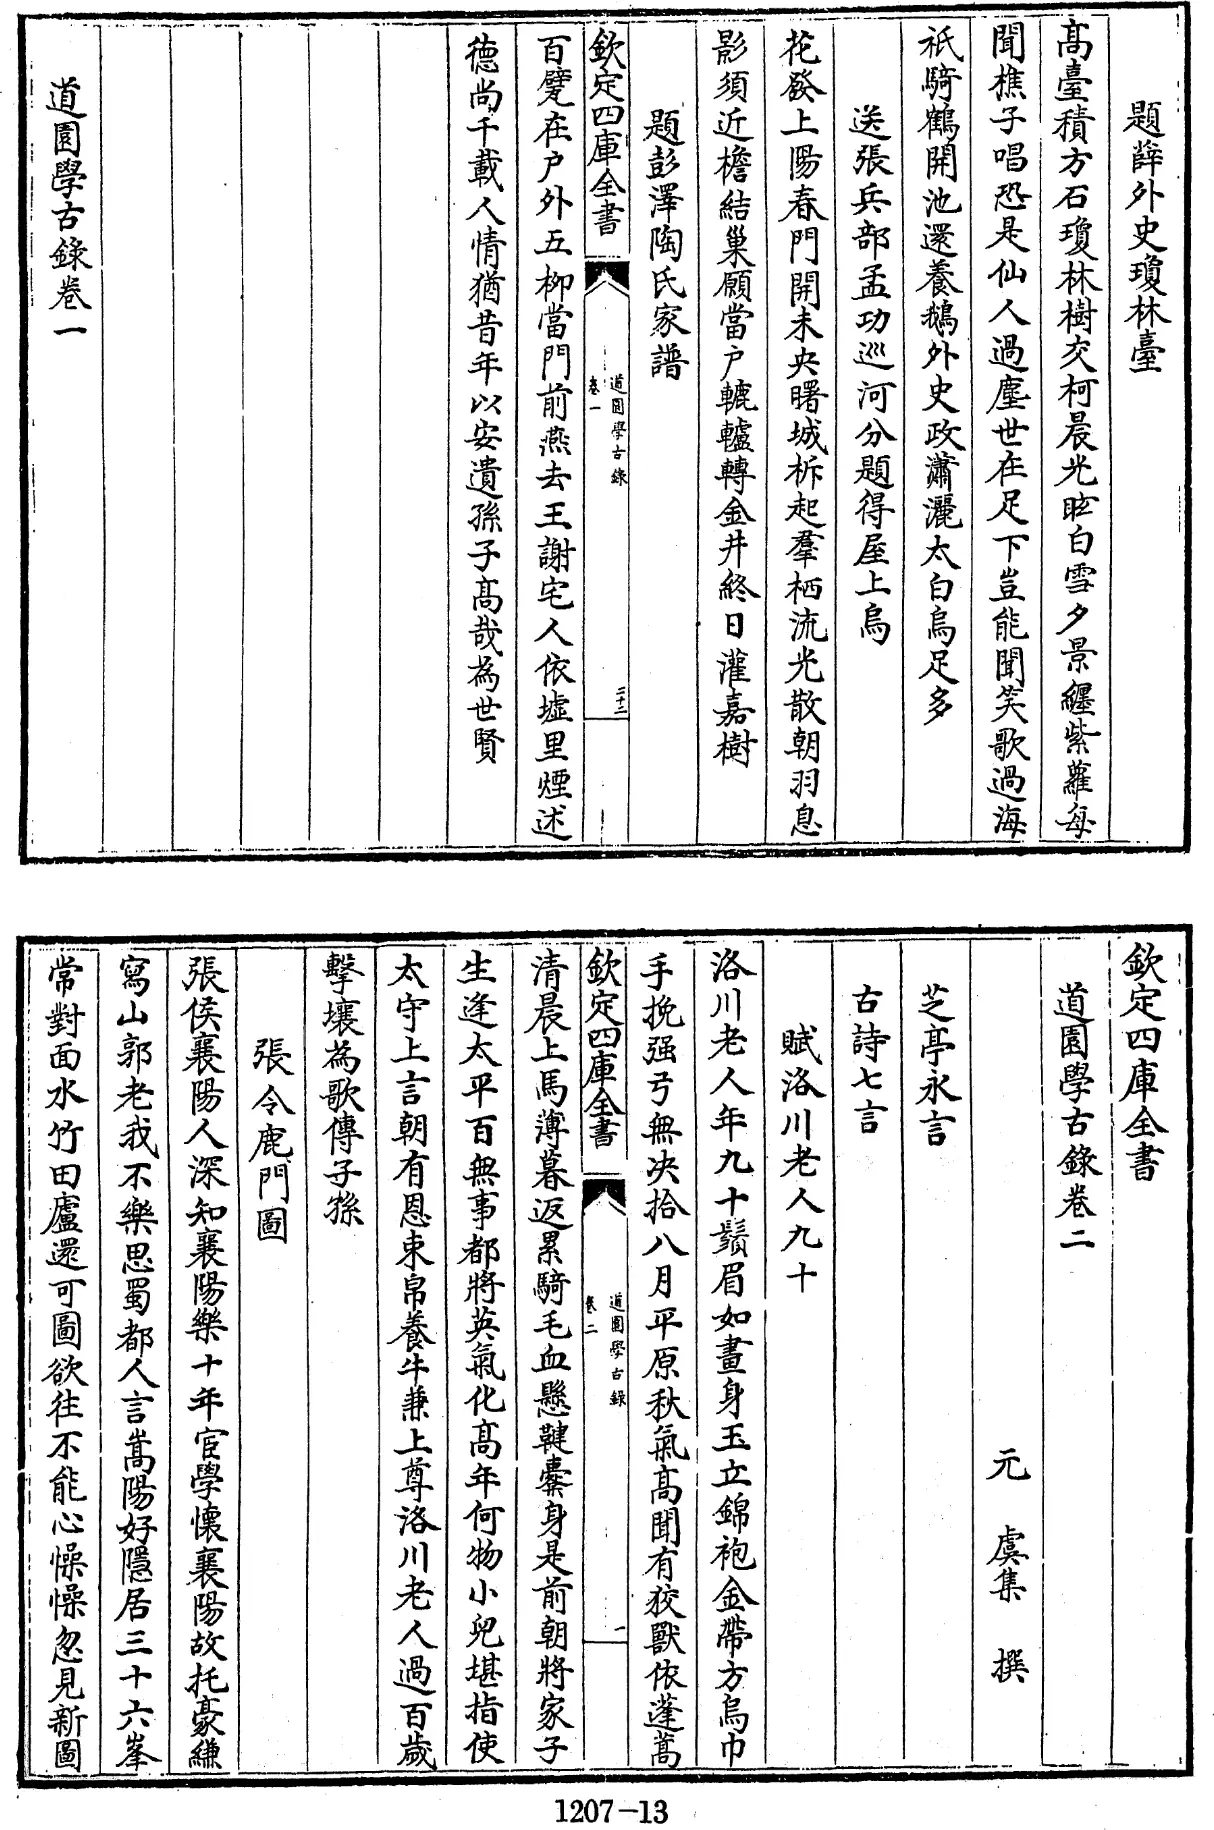 題薛外史瓊林臺
髙臺積方石瓊林樹交柯晨光眩白雪夕景纒紫蘿每
聞樵子唱恐是仙人過塵世在足下豈能聞笑歌過海
祇騎鶴開池還養鵝外史政瀟灑太白烏足多
送張兵部孟功巡河分題得屋上烏
花發上陽春門開未央曙城柝起羣栖流光散朝羽息
影須近檐結巢願當户轆轤轉金井終日灌嘉樹
題彭澤陶氏家譜
欽定四庫全書
道園學古錄
卷一
三十二
百甓在户外五柳當門前燕去王謝宅人依墟里煙述
德尚千載人情猶昔年以安遺孫子髙哉為世賢
道園學古錄卷一
欽定四庫全書
道園學古錄卷二
元 虞集 撰
芝亭永言
古詩七言
賦洛川老人九十
洛川老人年九十鬚眉如畫身玉立錦袍金帶方烏巾
手挽强弓無决拾八月平原秋氣髙聞有狡獸依蓬蒿
欽定四庫全書
道園學古錄
卷二
一
清晨上馬薄暮返累騎毛血懸鞬櫜身是前朝將家子
生逢太平百無事都將英氣化髙年何物小兒堪指使
太守上言朝有恩束帛養牛兼上尊洛川老人過百歲
擊壤為歌傳子孫
張令鹿門圖
張侯襄陽人深知襄陽樂十年宦學懷襄陽故托豪縑
寫山郭老我不樂思蜀都人言嵩陽好隱居三十六峯
常對面水竹田廬還可圖欲往不能心懆懆忽見新圖
1207-13